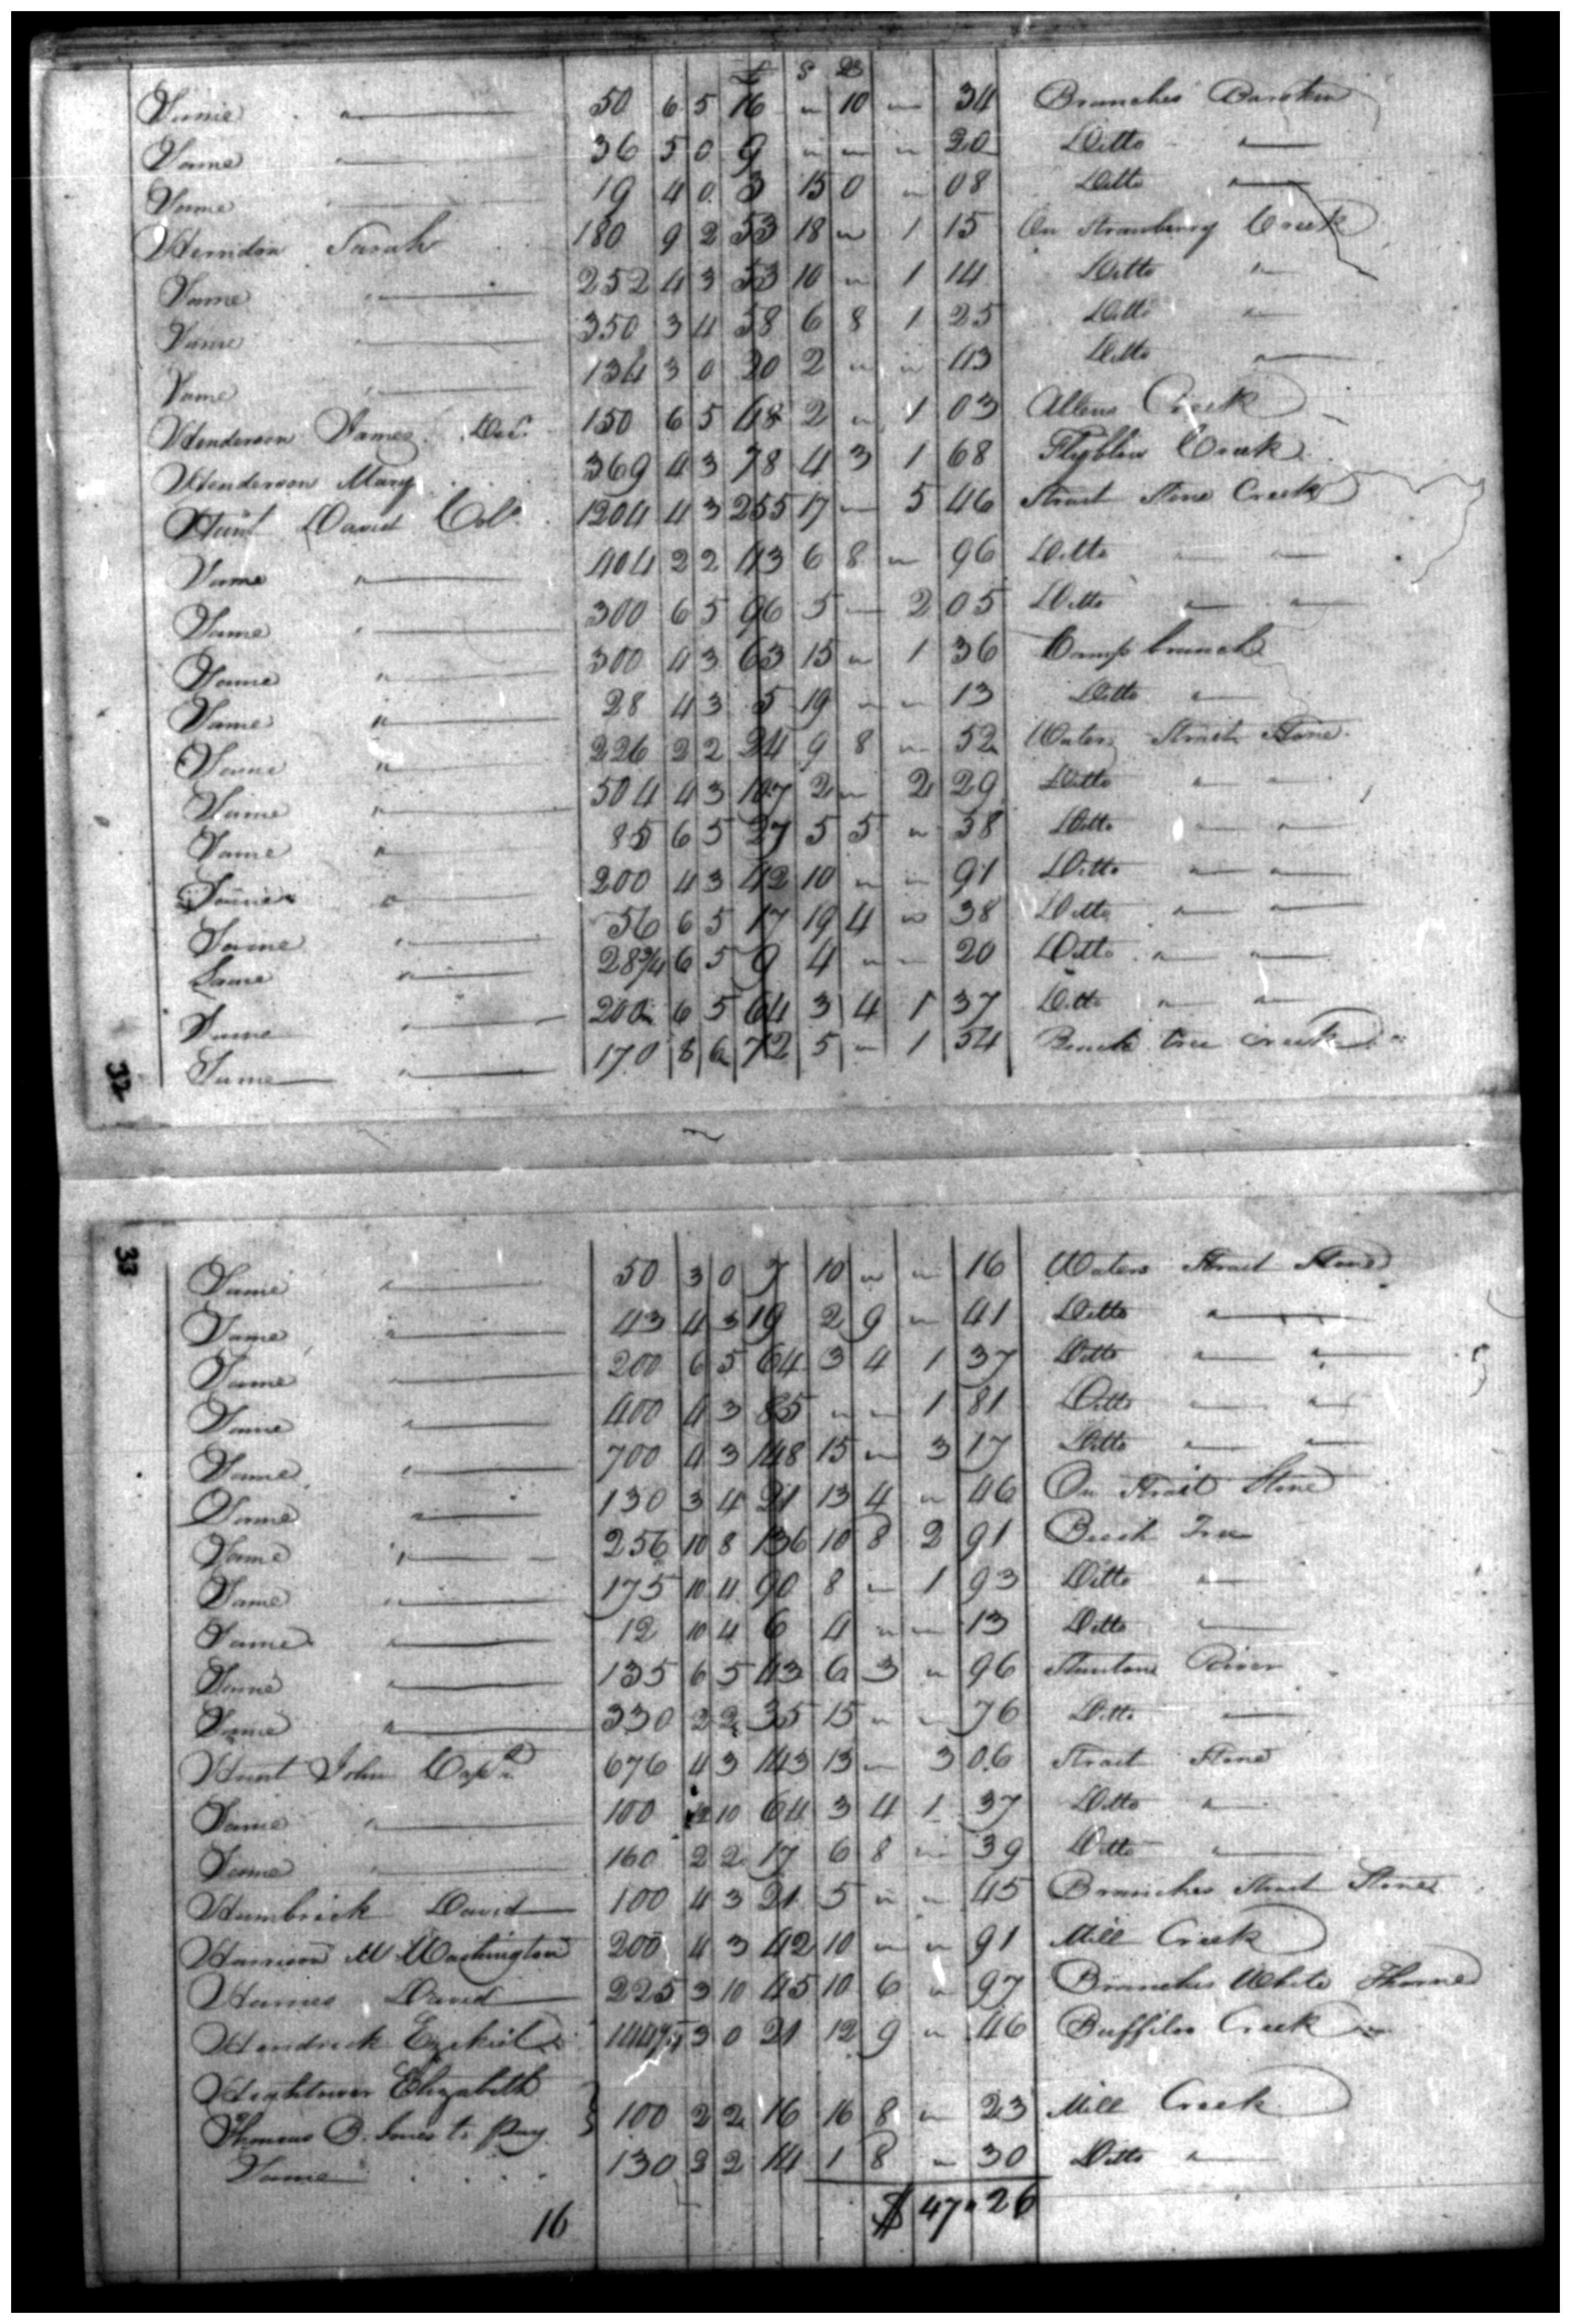 £ S D
Same " 50 6 5 16 " 10 " 34 Branches
Same " 36 5 0 9 " " " 20 Ditto "
Same 19 4 0 3 15 0 " 08 Ditto "
Herndon Sarah 180 9 2 53 18 " 1 15 On Strawberry Creek
Same " 252 4 3 53 10 " 1 14 Ditto "
Same " 350 3 4 58 6 8 1 25 Ditto "
Same " 134 3 0 20 2 " " 43 Ditto "
Henderson James Decd. 150 6 5 48 2 " 1 03 Allens Creek
Henderson Mary 369 4 3 78 4 3 1 68 Flyblow Creek
Hunt David Colo. 1204 4 3 255 17 " 5 46 Strait Stone Creek
Same " 404 2 2 43 6 8 " 96 Ditto " "
Same " 300 6 5 96 5 " 2 05 Ditto " "
Same " 300 4 3 63 15 " 1 36 Camp branch
Same " 28 4 3 5 19 " " 13 Ditto "
Same " 226 2 2 24 9 8 " 52 Waters Strait Stone
Same " 504 4 3 107 2 " 2 29 Ditto " "
Same " 85 6 5 27 5 5 " 58 Ditto " "
Same " 200 4 3 42 10 " " 91 Ditto " "
Same " 56 6 5 17 19 4 " 38 Ditto " "
Same " 28¾ 6 5 9 4 " " 20 Ditto " "
Same " 200 6 5 64 3 4 1 37 Ditto " "
Same " 170 8 6 72 5 " 1 54 Beach tree creek
32
33
Same " 50 3 0 7 10 " " 16 Waters Strait Stone
Same " 43 4 3 19 2 9 " 41 Ditto "
Same " 200 6 5 64 3 4 1 37 Ditto " "
Same " 400 4 3 85 " " 1 81 Ditto " "
Same " 700 4 3 148 15 " 3 17 Ditto " "
Same " 130 3 4 21 13 4 " 46 On Strait Stone
Same " 256 10 8 136 10 8 2 91 Beech Tree
Same " 175 10 4 90 8 " 1 93 Ditto "
Same " 12 10 4 6 4 " " 13 Ditto "
Same " 135 6 5 43 6 3 " 96 Stantons River
Same " 330 2 2 35 15 " " 76 Ditto "
Hunt John Capt. 676 4 3 143 13 " 3 06 Strait Stone
Same " 100 12 10 64 3 4 1 37 Ditto "
Same " 160 2 2 17 6 8 " 39 Ditto "
Hambrick David 100 4 3 21 5 " " 45 Branches Strait Stone
Harrison W Washington 200 4 3 42 10 " " 91 Mill Creek
Haynes David 225 3 10 45 10 6 " 97 Branches White Thorne
Hendrick Ezekiel 3 0 21 12 9 " 46 Buffilow Creek
Hightower Elizabeth
Thomas B. Jones to pay } 100 2 2 16 16 8 " 23 Mill Creek
Same 130 2 2 14 1 8 " 30 Ditto "
16 $ 47 " 26